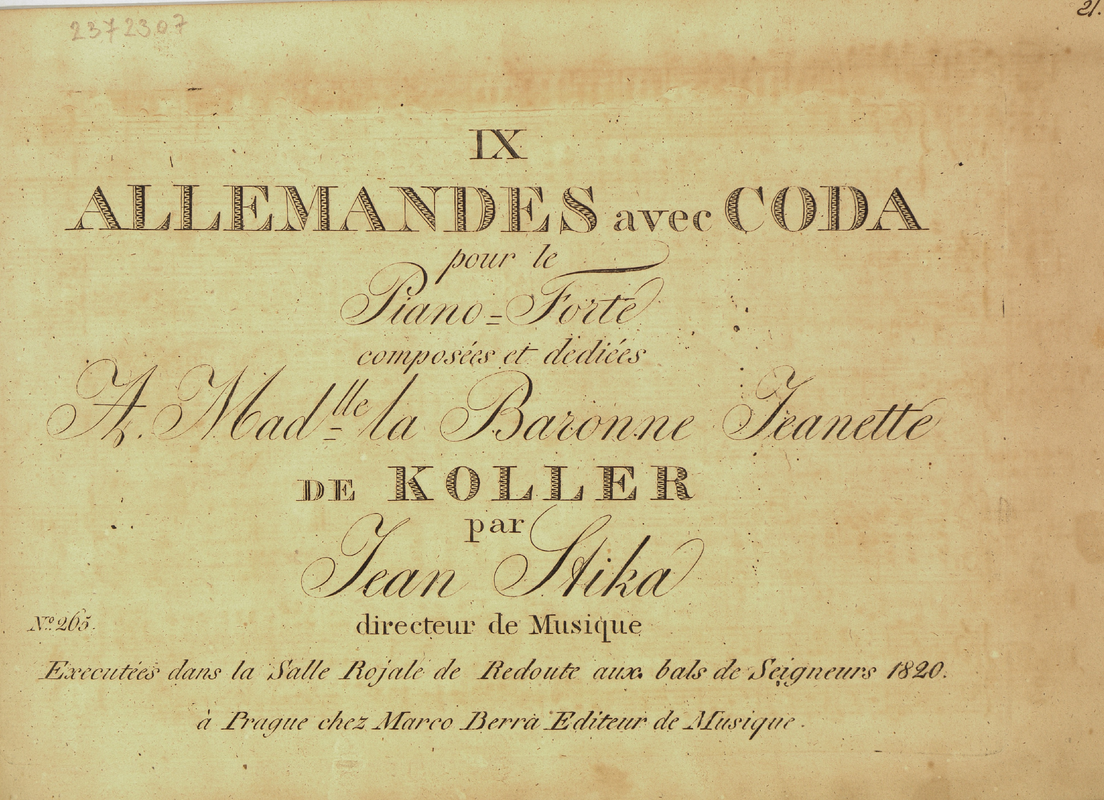 2372307
21.
IX
ALLEMANDES avec CODA
pour le
Piano=Forte
composées et dediées
A. Mad.lle la Baronne Jeanette
DE KOLLER
par
Jean Stika
directeur de Musique
No. 265.
Executées dans la Salle Rojale de Redoute aux bals de Seigneurs 1820.
à Prague chez Marco Berra Editeur de Musique.